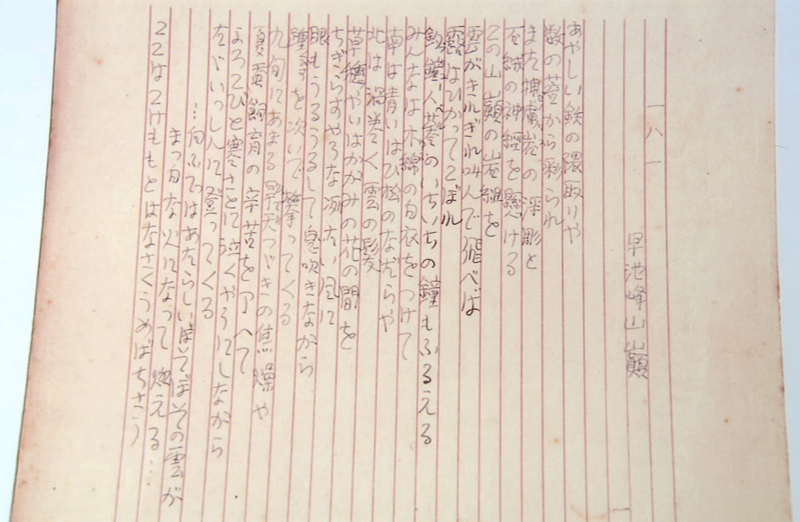 一八一
早池峰山巓
あやしい鉄の隈取りや
数の苔から彩られ
また捕虜岩の浮彫と
石絨の神経を懸ける
この山巓の岩組を
雲がきれぎれ叫んで飛べば
露はひかってこぼれ
釣鐘人蔘のいちいちの鐘もふるえる
みんなは木綿の白衣をつけて
南は青いはひ松のなだらや
北は渦巻く雲の髪
草穂やいはかがみの花の間を
ちぎらすやうな冽たい風に
眼もうるうるして息吹きながら
踵を次いで攀ってくる
九旬にあまる旱天つづきの焦燥や
夏蚕飼育の辛苦を了へて
よろこびと寒さとに泣くやうにしながら
たゞいっしんに登ってくる
…向ふではあたらしいぼそぼその雲が
まっ白な火になって燃える…
ここはこけももとはなさくうめばちさう